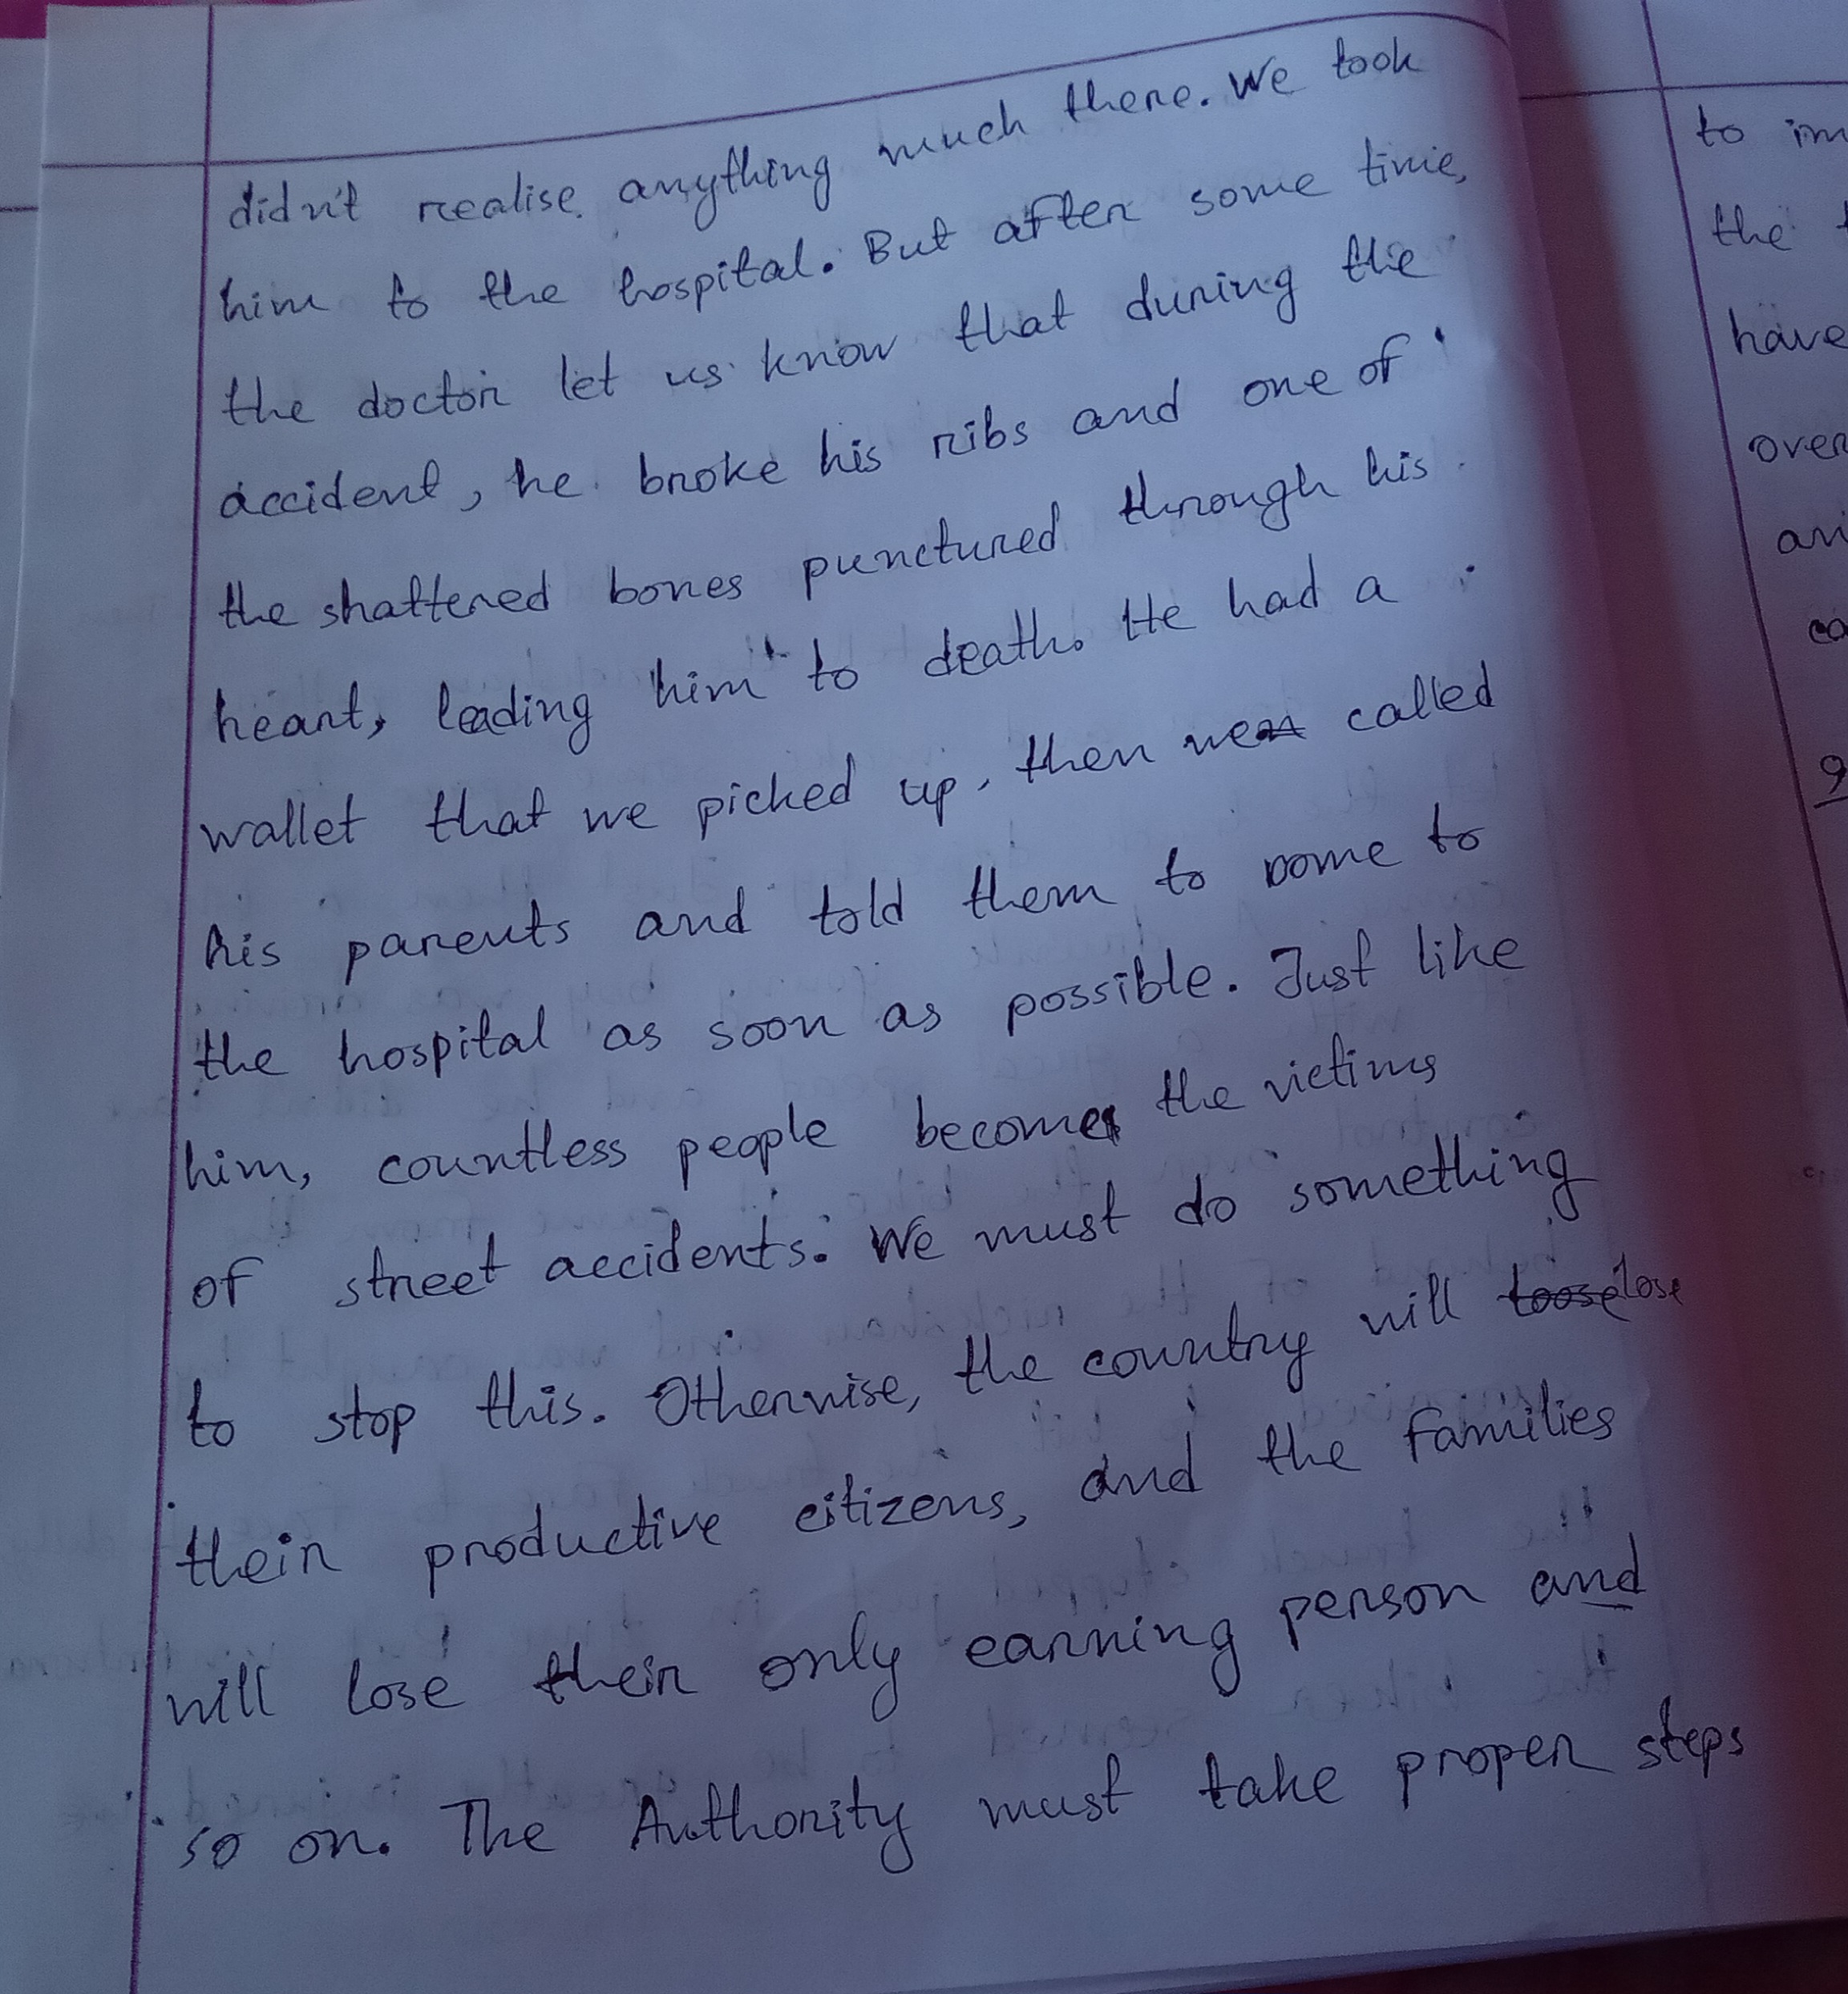 didn't realise anything much there. We took
him to the hospital. But after some time,
the doctor let us know that during the
accident, he broke his ribs and one of
the shattered bones punctured through his
heart, leading him to death. He had a
wallet that we picked up, then we called
his parents and told them to come to
the hospital as soon as possible. Just like
him, countless people become the victims
of street accidents. We must do something
to stop this. Otherwise, the country will loose lose
their productive citizens, and the families
will lose their only earning person and
so on. The Authority must take proper steps
to im
the
have
over
an
ca
9